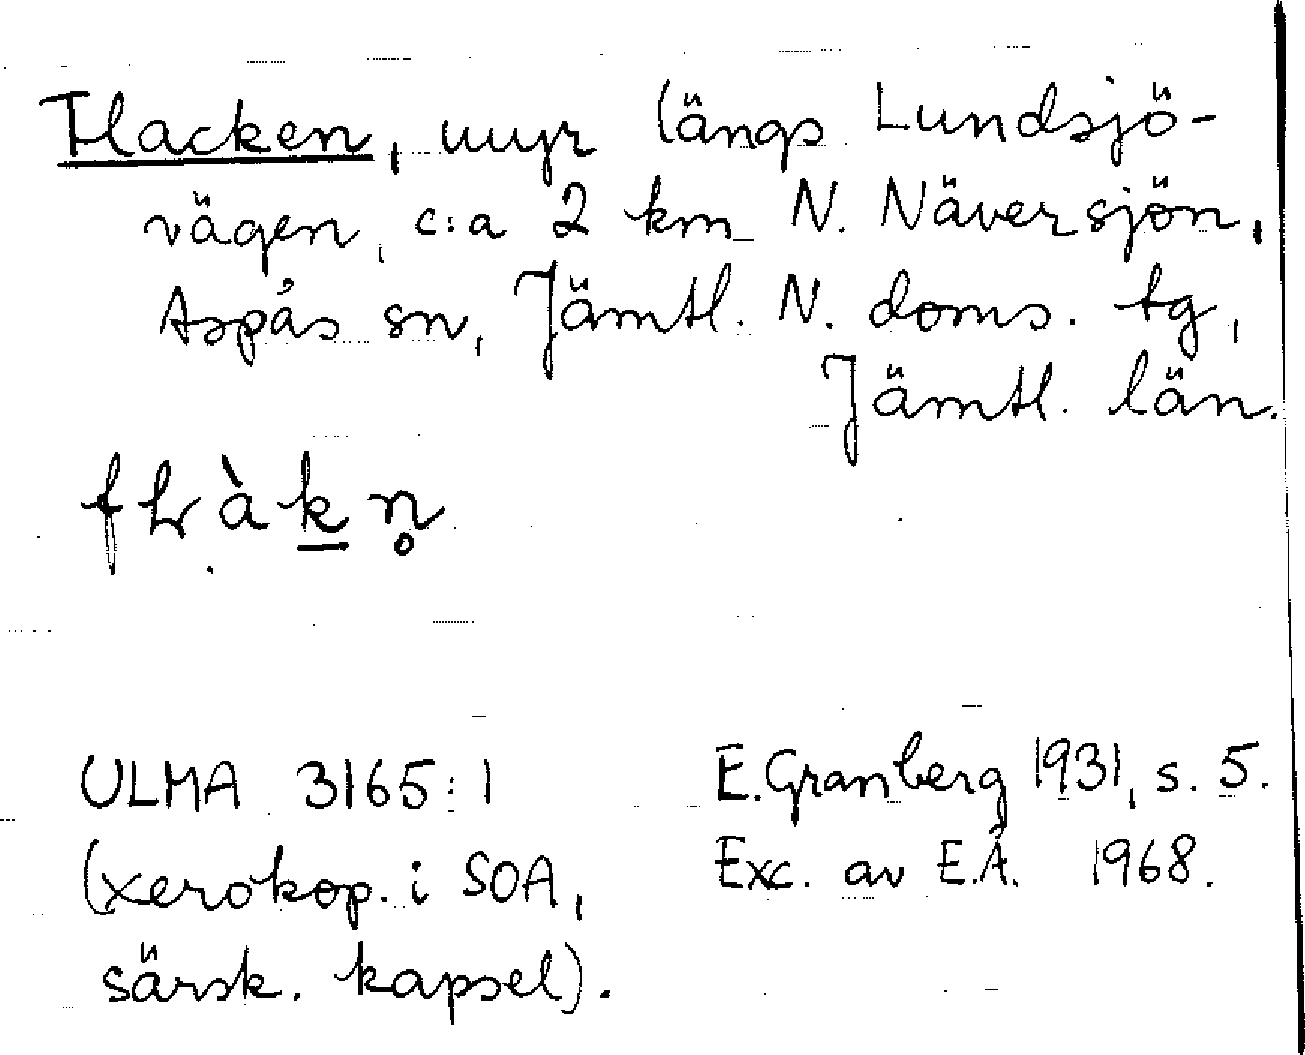 Flacken, myr längs Lundsjö-
vägen, c:a 2 km N. Näversjön,
Aspås sn, Jämtl. N. doms. tg,
Jämtl. län.
ULMA 3165:1
(xerokop. i SOA,
särsk. kapsel).
E. Granberg 1931, s. 5.
Exc. av E.Å. 1968.